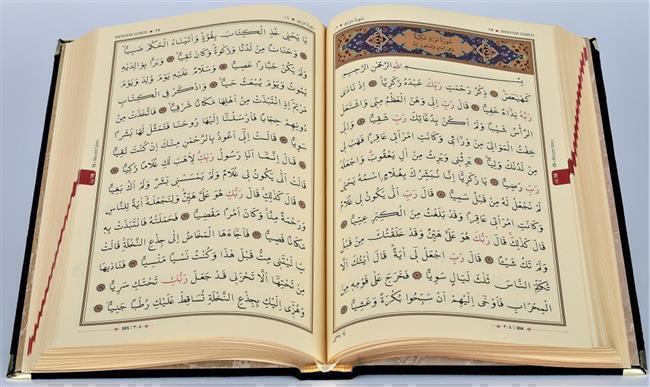 MERYEM SURESİ
19
سورة مريم
بِسْمِ اللّٰهِ الرَّحْمٰنِ الرَّحِيمِ
كٓهٰيٰعٓصٓ ذِكْرُ رَحْمَتِ رَبِّكَ عَبْدَهُ زَكَرِيَّا اِذْ نَادٰى
رَبَّهُ نِدَٓاءً خَفِيًّا قَالَ رَبِّ اِنّ۪ي وَهَنَ الْعَظْمُ مِنّ۪ي وَاشْتَعَلَ
الرَّأْسُ شَيْبًا وَلَمْ اَكُنْ بِدُعَٓائِكَ رَبِّ شَقِيًّا وَاِنّ۪ي
خِفْتُ الْمَوَالِيَ مِنْ وَرَٓاء۪ي وَكَانَتِ امْرَاَت۪ي عَاقِرًا فَهَبْ ل۪ي
مِنْ لَدُنْكَ وَلِيًّا يَرِثُن۪ي وَيَرِثُ مِنْ اٰلِ يَعْقُوبَ وَاجْعَلْهُ
رَبِّ رَضِيًّا يَا زَكَرِيَّٓا اِنَّا نُبَشِّرُكَ بِغُلَامٍ اسْمُهُ يَحْيٰى
لَمْ نَجْعَلْ لَهُ مِنْ قَبْلُ سَمِيًّا قَالَ رَبِّ اَنّٰى يَكُونُ ل۪ي غُلَامٌ
وَكَانَتِ امْرَاَت۪ي عَاقِرًا وَقَدْ بَلَغْتُ مِنَ الْكِبَرِ عِتِيًّا
قَالَ كَذٰلِكَ قَالَ رَبُّكَ هُوَ عَلَيَّ هَيِّنٌ وَقَدْ خَلَقْتُكَ مِنْ قَبْلُ
وَلَمْ تَكُ شَيْـًٔا قَالَ رَبِّ اجْعَلْ ل۪ٓي اٰيَةً قَالَ اٰيَتُكَ اَلَّا
تُكَلِّمَ النَّاسَ ثَلٰثَ لَيَالٍ سَوِيًّا فَخَرَجَ عَلٰى قَوْمِه۪ مِنَ
الْمِحْرَابِ فَاَوْحٰٓى اِلَيْهِمْ اَنْ سَبِّحُوا بُكْرَةً وَعَشِيًّا
٣٠٤
304
MERYEM SURESİ
سورة مريم
يَا يَحْيٰى خُذِ الْكِتَابَ بِقُوَّةٍ وَاٰتَيْنَاهُ الْحُكْمَ صَبِيًّا
وَحَنَانًا مِنْ لَدُنَّا وَزَكٰوةً وَكَانَ تَقِيًّا وَبَرًّا بِوَالِدَيْهِ
وَلَمْ يَكُنْ جَبَّارًا عَصِيًّا وَسَلَامٌ عَلَيْهِ يَوْمَ وُلِدَ وَيَوْمَ
يَمُوتُ وَيَوْمَ يُبْعَثُ حَيًّا وَاذْكُرْ فِي الْكِتَابِ
مَرْيَمَ اِذِ انْتَبَذَتْ مِنْ اَهْلِهَا مَكَانًا شَرْقِيًّا فَاتَّخَذَتْ مِنْ
دُونِهِمْ حِجَابًا فَاَرْسَلْنَٓا اِلَيْهَا رُوحَنَا فَتَمَثَّلَ لَهَا بَشَرًا
سَوِيًّا قَالَتْ اِنّ۪ٓي اَعُوذُ بِالرَّحْمٰنِ مِنْكَ اِنْ كُنْتَ تَقِيًّا
قَالَ اِنَّمَٓا اَنَا۬ رَسُولُ رَبِّكِ لِاَهَبَ لَكِ غُلَامًا زَكِيًّا
قَالَتْ اَنّٰى يَكُونُ ل۪ي غُلَامٌ وَلَمْ يَمْسَسْن۪ي بَشَرٌ وَلَمْ اَكُ بَغِيًّا
قَالَ كَذٰلِكِ قَالَ رَبُّكِ هُوَ عَلَيَّ هَيِّنٌ وَلِنَجْعَلَهُٓ اٰيَةً لِلنَّاسِ
وَرَحْمَةً مِنَّا وَكَانَ اَمْرًا مَقْضِيًّا فَحَمَلَتْهُ فَانْتَبَذَتْ بِه۪
مَكَانًا قَصِيًّا فَاَجَٓاءَهَا الْمَخَاضُ اِلٰى جِذْعِ النَّخْلَةِ قَالَتْ
يَا لَيْتَن۪ي مِتُّ قَبْلَ هٰذَا وَكُنْتُ نَسْيًا مَنْسِيًّا فَنَادٰيهَا
مِنْ تَحْتِهَٓا اَلَّا تَحْزَن۪ي قَدْ جَعَلَ رَبُّكِ تَحْتَكِ سَرِيًّا
وَهُزّ۪ٓي اِلَيْكِ بِجِذْعِ النَّخْلَةِ تُسَاقِطْ عَلَيْكِ رُطَبًا جَنِيًّا
305